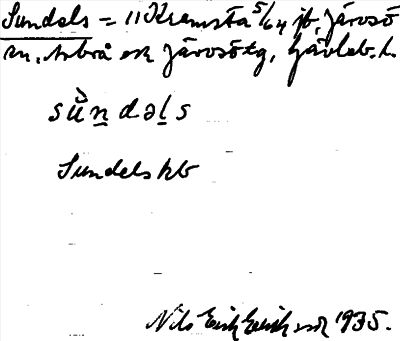 Sundels = 11 Kramsta 5/64 jb, Järvsö
sn, Arbrå och Järvsö tg, Gävleb. l.
sù̈n̲dəl̲s
Sundels hb
Nils Erik Eriksson 1935.